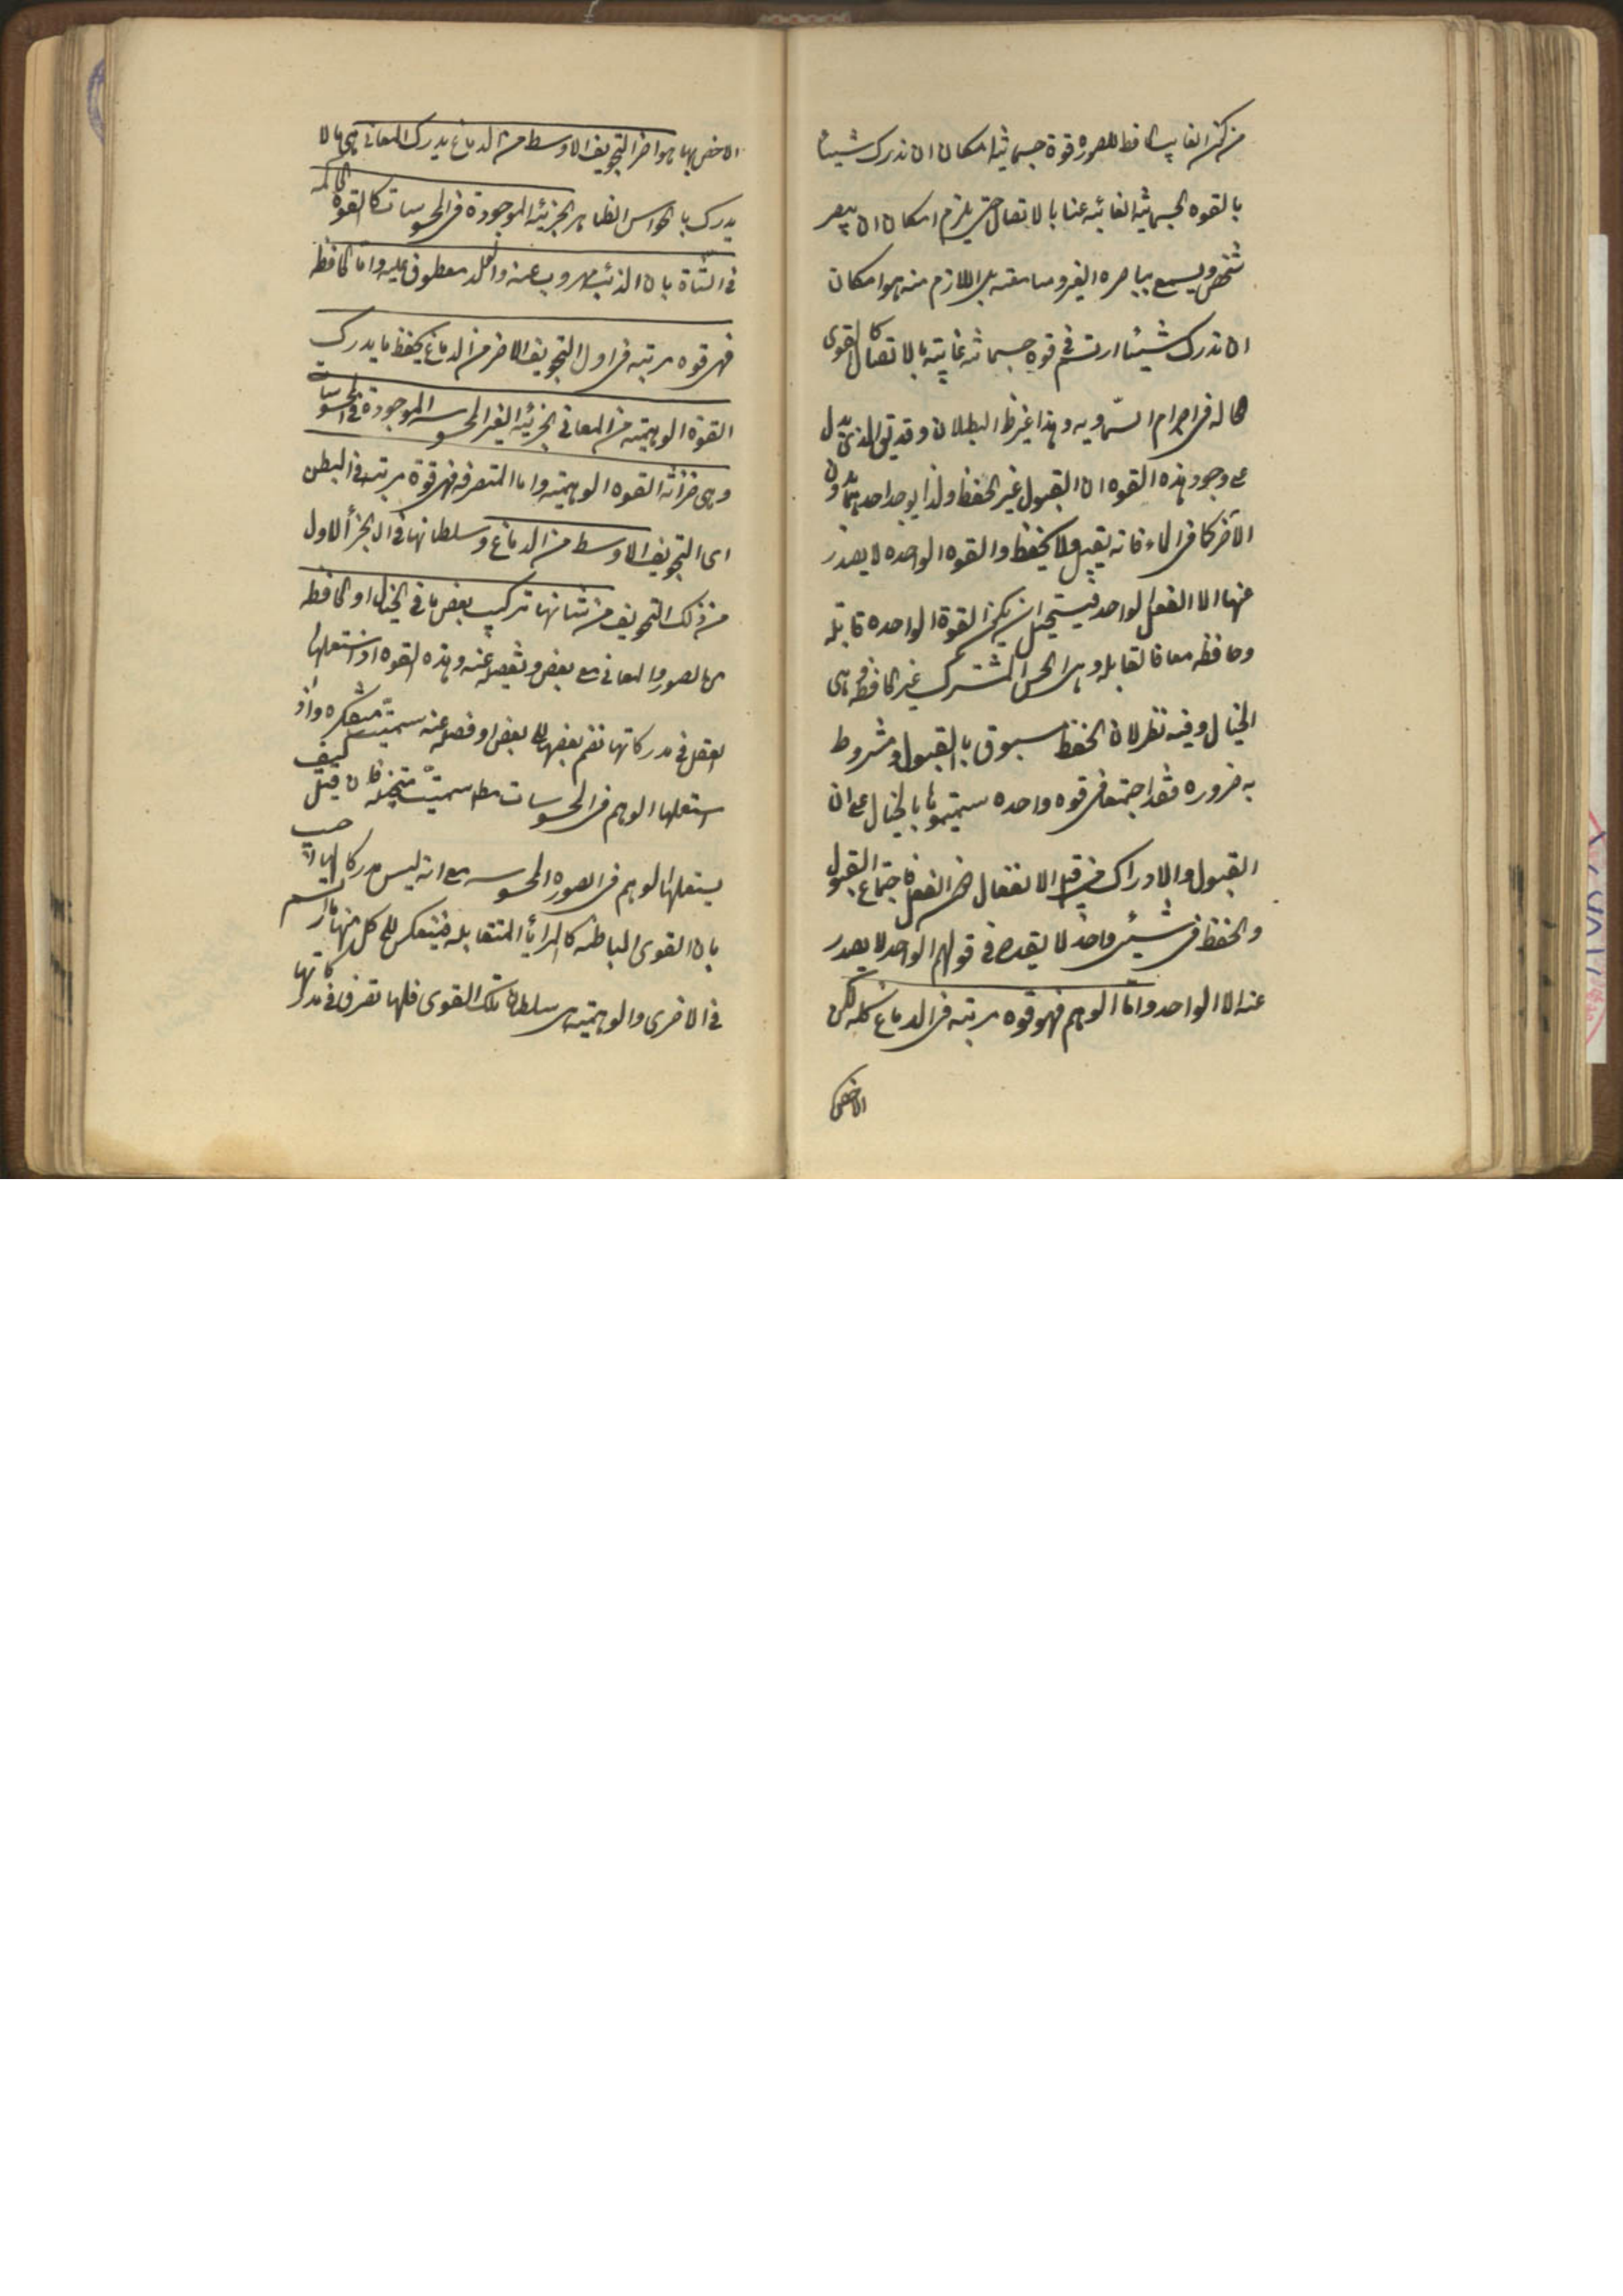 من كون الغايب الحافظ للصوره قوة جسمانية امكان ان ندرك شيئا
بالقوه الجسمانية الغائبه عنا بالاتصال حتى يلزم امكان ان يبصر
شخص ويسمع بباصره الغير وسامعته بل اللازم منه هو امكان
ان ندرك شيئا ارتسم فى قوه جسمانيه غائبته بالاتصال كالقوى
الحاله فى اجرام السماويه وهذا غير ظ البطلان وقد يق الذى يدل
على وجود هذه القوه ان القبول غير الحفظ ولذا يوجد احدهما بدون
الآخر كما فى الماء فانه يقبل ولا يحفظ والقوه الواحده لا يصدر
عنها الا الفعل الواحد فيستحيل ان يكون القوة الواحده قابله
وحافظه معا فالقابله وهى الحس المشترك غير الحافظه وهى
الخيال وفيه نظر لان الحفظ مسبوق بالقبول ومشروط
به ضروره فقد اجتمعا فى قوه واحده سميتموها بالخيال على ان
القبول والادراك من قبيل الانفعال دون الفعل فاجتماع القبول
والحفظ فى شىء واحد لا يقدح فى قولهم الواحد لا يصدر
عنه الا الواحد واما الوهم فهو قوه مرتبه فى الدماغ كله لكن
الاخص
الاخص بها هو اخر التجويف الاوسط من الدماغ يدرك المعانى هى ما لا
يدرك بالحواس الظاهر الجزئيه الموجودة فى المحسوسات كالقوة الحاكمه
فى الشاة بان الذئب مهروب عنه والولد معطوف عليه واما الحافظه
فهى قوه مرتبه فى اول التجويف الاخر من الدماغ يحفظ ما يدرك
القوة الوهميته من المعانى الجزئيه الغير المحسوسه الموجودة فى المحسوسات
وهى خزانه القوه الوهميته واما المتصرفه فهى قوة مرتبه فى البطن
اى التجويف الاوسط من الدماغ وسلطانها فى الجزأ الاول
من ذلك التجويف من شانها تركيب بعض ما فى الخيال او الحافظه
من الصور والمعانى مع بعض وتفصيله عنه وهذه القوه اذا استعملها
العقل فى مدركاتها تضم بعضها الى بعض او فصله عنه سميت متفكره واذ
استعملها الوهم فى المحسوسات مط سميت متخيله فان قيل كيف
يستعملها الوهم فى الصوره المحسوسه مع انه ليس مدركا لها اجيب
بان القوى الباطنه كالمرايأ المتقابله فينعكس الى كل منها ما ارتسم
فى الاخرى والوهميته هى سلطان تلك القوى فلها تصرف فى مدركاتها